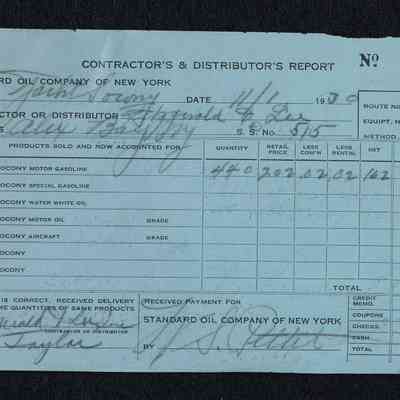 CONTRACTOR'S & DISTRIBUTOR'S REPORT Nº
RD OIL COMPANY OF NEW YORK
DATE 11/1 1930
ROUTE NO
CTOR OR DISTRIBUTOR Fitzgerald & Lee
EQUIPT. N
Alex Bay NY S. S. No. 515
METHOD
PRODUCTS SOLD AND NOW ACCOUNTED FOR QUANTITY RETAIL PRICE LESS COM'N LESS RENTAL NET
OCONY MOTOR GASOLINE 440 202 .02 .02 162
OCONY SPECIAL GASOLINE
OCONY WATER WHITE OIL
OCONY MOTOR OIL GRADE
OCONY AIRCRAFT GRADE
OCONY
OCONY
TOTAL
IS CORRECT, RECEIVED DELIVERY
E QUANTITIES OF SAME PRODUCTS
CONTRACTOR OR DISTRIBUTOR
Taylor
RECEIVED PAYMENT FOR
STANDARD OIL COMPANY OF NEW YORK
BY
CREDIT MEMO.
COUPONS
CHECKS
CASH
TOTAL